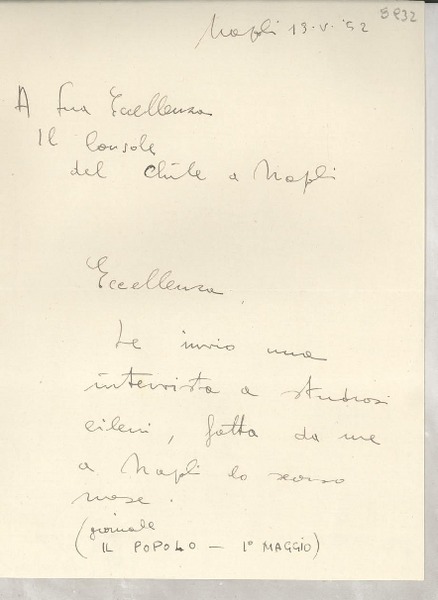 Napoli 13-V-'52
A Sua Eccellenza
Il Console
del Chile a Napoli
Eccellenza,
Le invio una
intervista a studiosi
cileni, fatta da me
a Napoli lo scorso
mese.
(giornale
IL POPOLO — 1° MAGGIO)